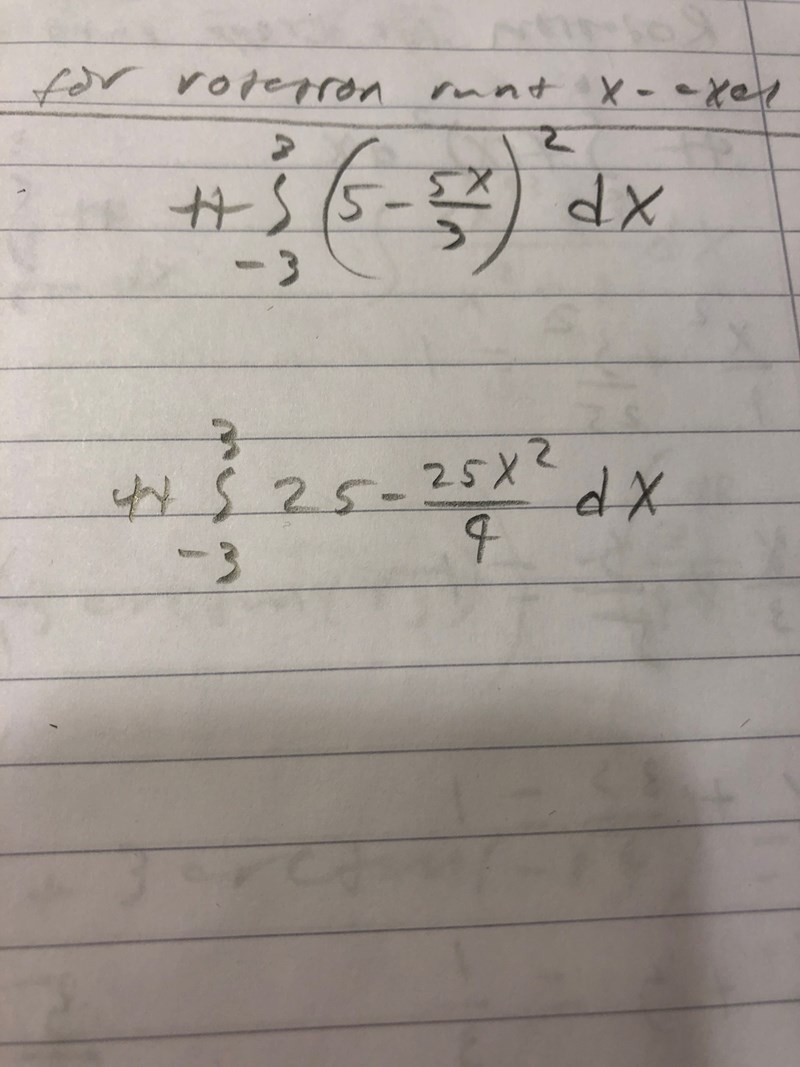 for rotation runt x-axel
π ∫_{-3}^{3} (5 - 5x/3)^2 dx
π ∫_{-3}^{3} 25 - 25x^2/9 dx